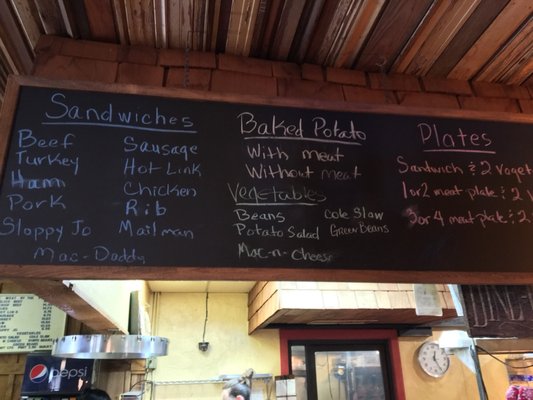 Sandwiches
Beef
Turkey
Ham
Pork
Sloppy Jo
Sausage
Hot Link
Chicken
Rib
Mailman
Mac-Daddy
Baked Potato
With meat
Without meat
Vegetables
Beans
Cole Slaw
Potato Salad
Green Beans
Mac-n-Cheese
Plates
Sandwich & 2 Veget
1 or 2 meat plate & 2 V
3 or 4 meat plate & 2
pepsi